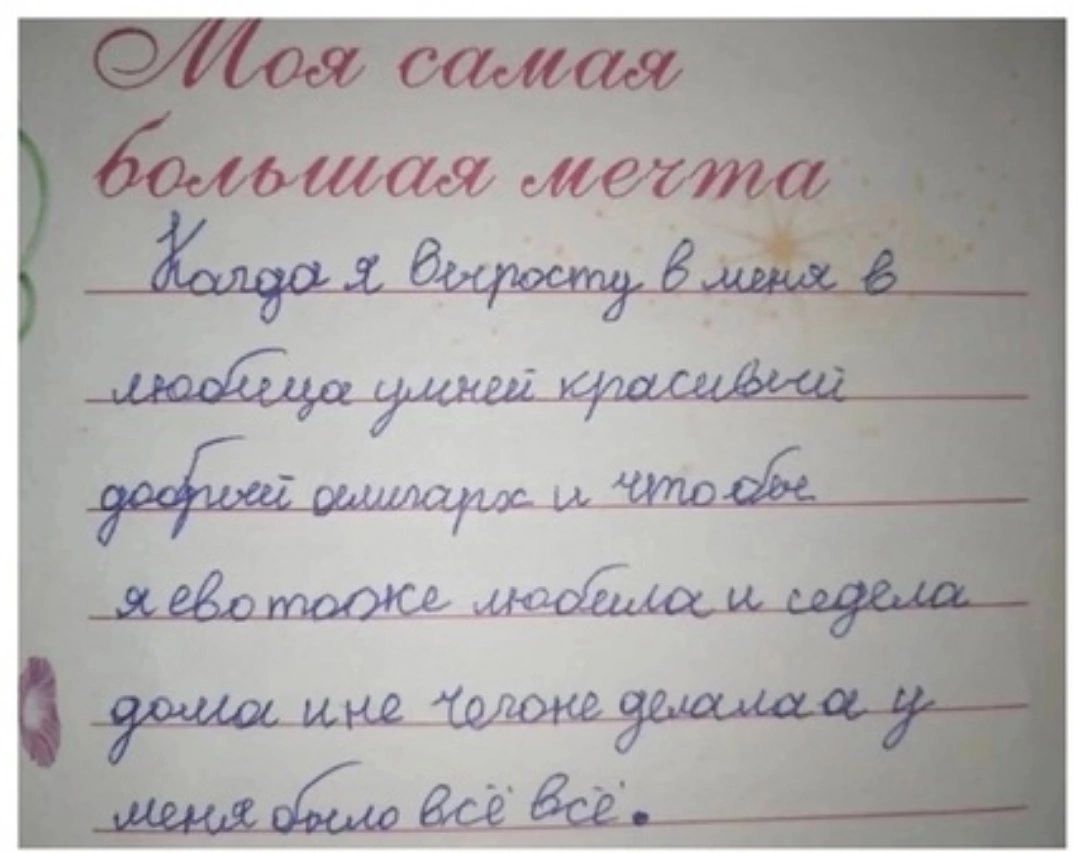 Моя самая
большая мечта
Кагда я выросту в меня в
любица умней красивый
добрый олигарх и что обы
я ево тоже любила и седела
дома и не чегоне делала а у
меня было всё всё.